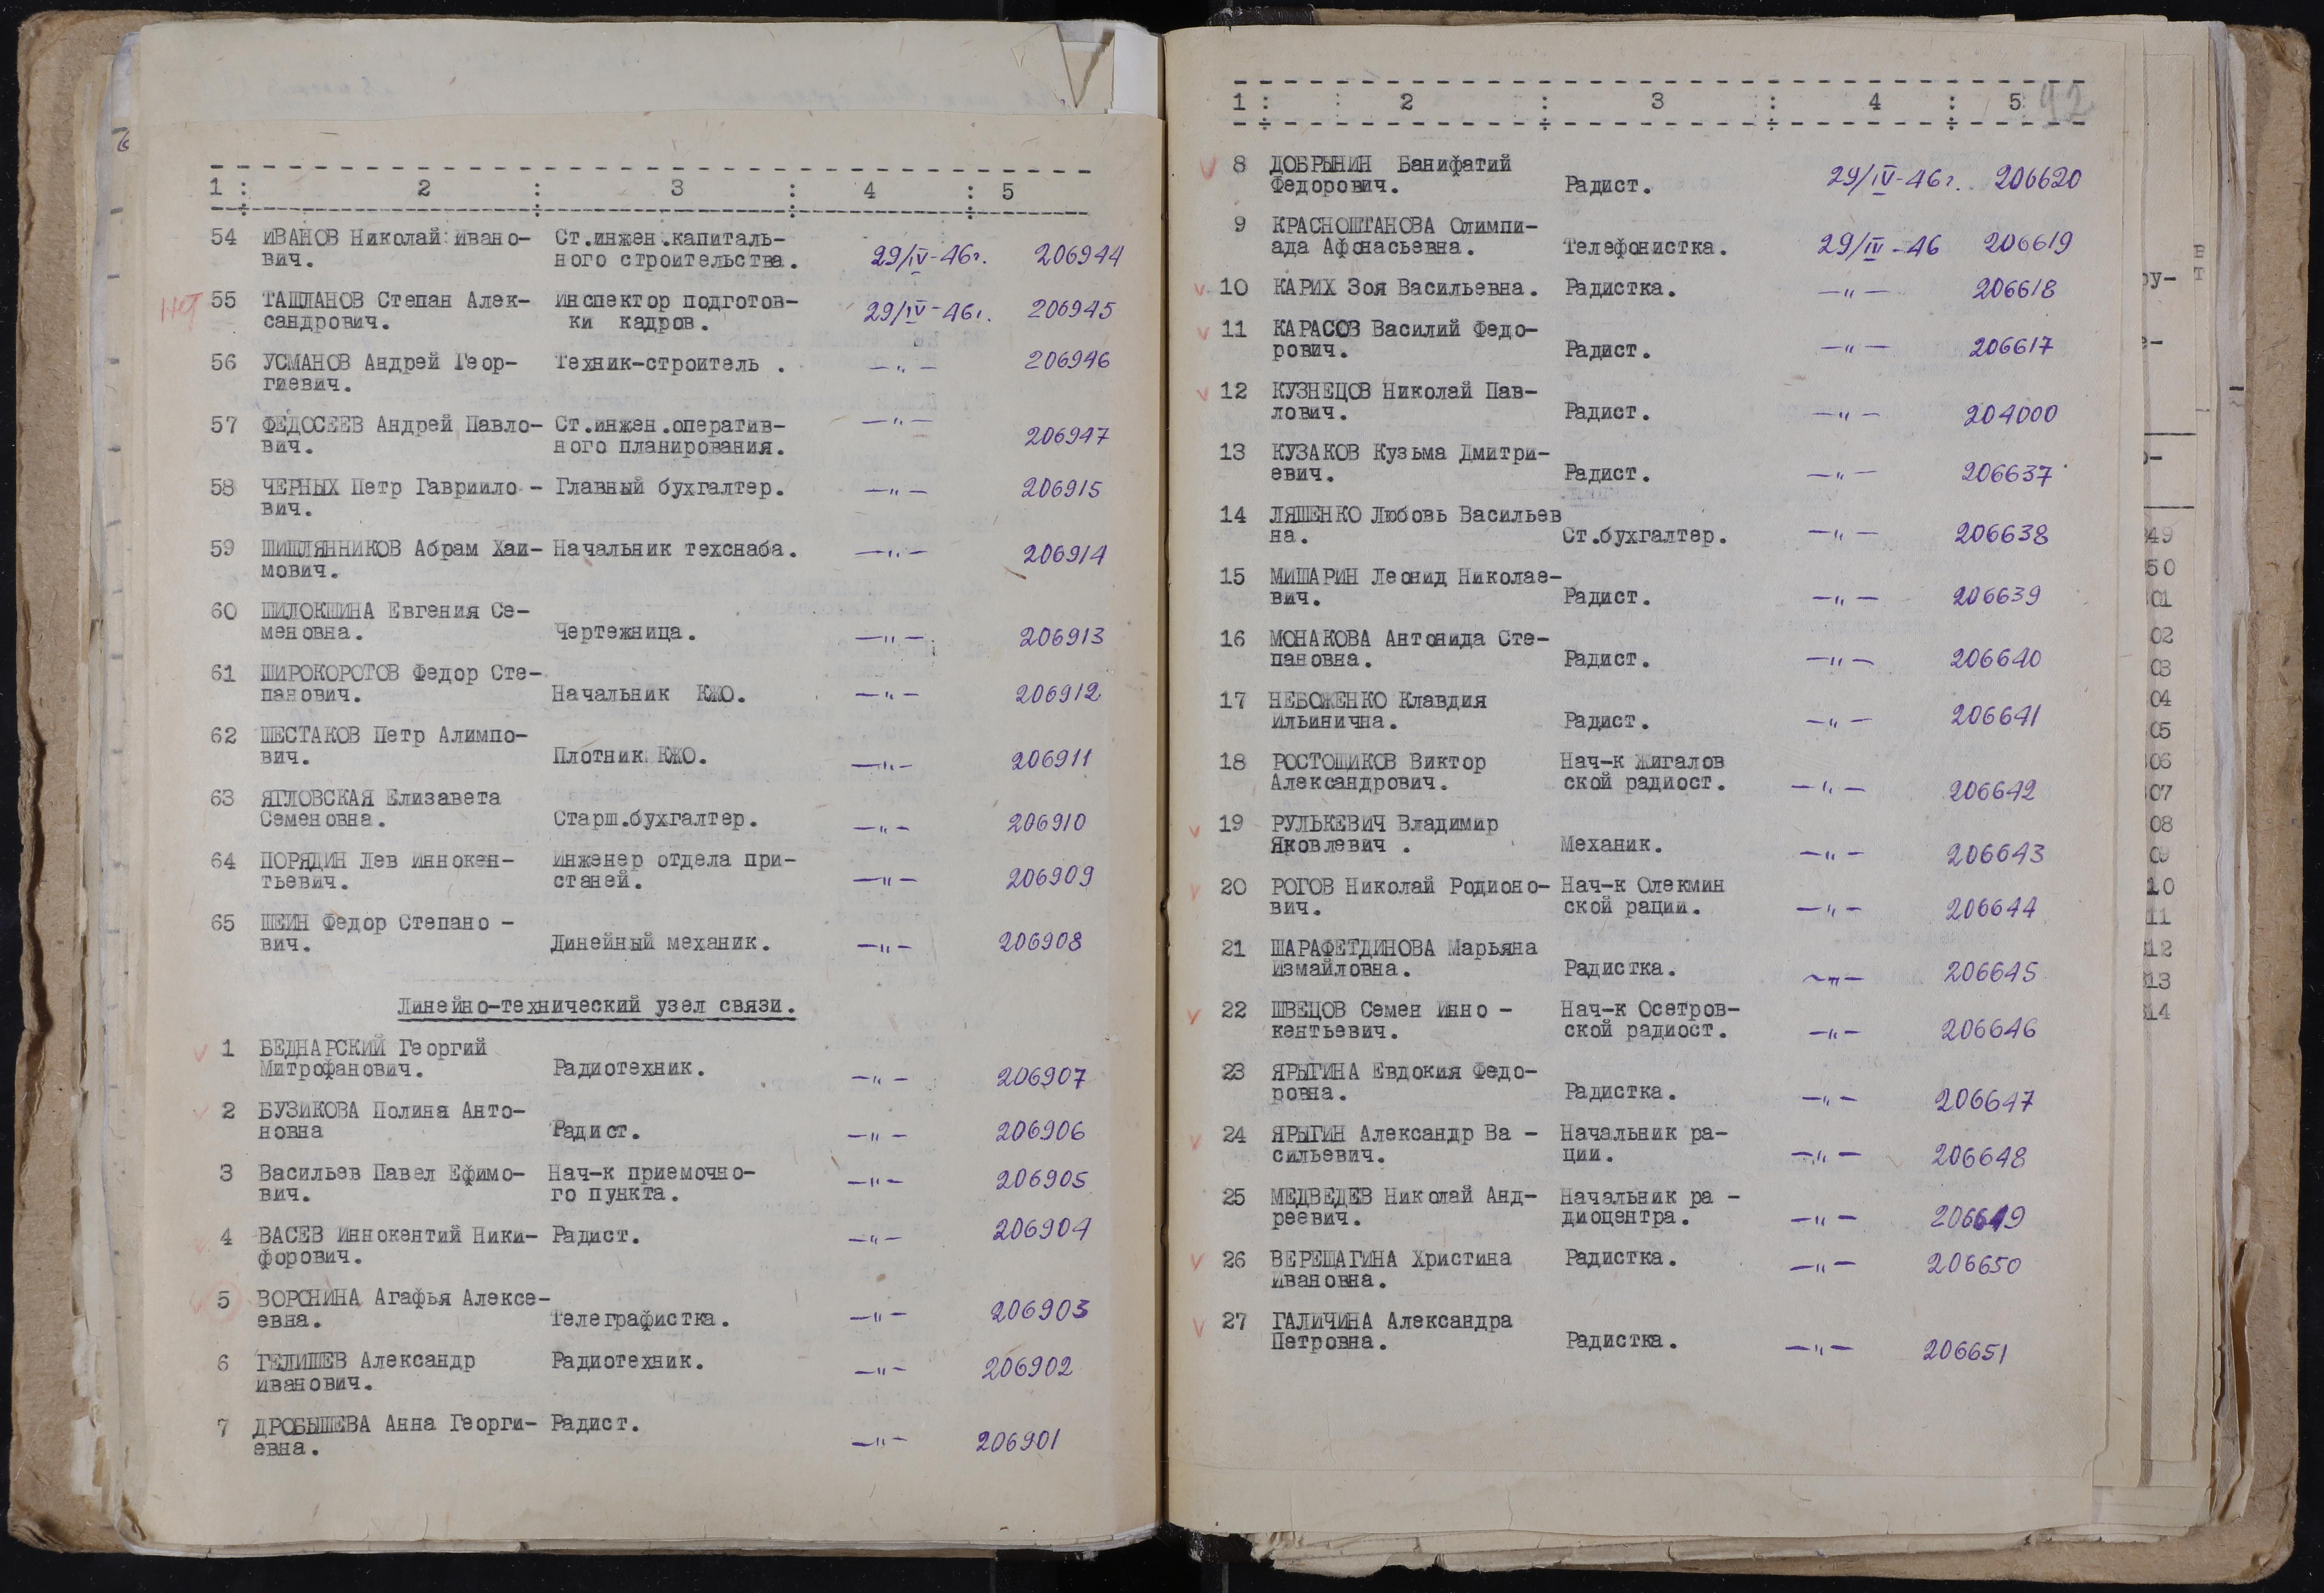 1 : 2 : 3 : 4 : 5
54 ИВАНОВ Николай Ивано- Ст.инжен.капиталь-
вич. ного строительства. 29/IV-46г. 206944
нет 55 ТАШЛАНОВ Степан Алек- Инспектор подготов-
сандрович. ки кадров. 29/IV-46г. 206945
56 УСМАНОВ Андрей Геор- Техник-строитель . —"— 206946
гиевич.
57 ФЕДОСЕЕВ Андрей Павло- Ст.инжен.оператив- —"—
вич. ного планирования. 206947
58 ЧЕРНЫХ Петр Гавриило - Главный бухгалтер. —"— 206915
вич.
59 ШИШЛЯННИКОВ Абрам Хаи- Начальник техснаба. —"— 206914
мович.
60 ШИЛОКШИНА Евгения Се-
меновна. Чертежница. —"— 206913
61 ШИРОКОРОТОВ Федор Сте-
панович. Начальник КЖО. —"— 206912
62 ШЕСТАКОВ Петр Алимпо-
вич. Плотник КЖО. —"— 206911
63 ЯГЛОВСКАЯ Елизавета
Семеновна. Старш.бухгалтер. —"— 206910
64 ПОРЯДИН Лев Иннокен- Инженер отдела при-
тьевич. станей. —"— 206909
65 ШЕИН Федор Степано -
вич. Линейный механик. —"— 206908
Линейно-технический узел связи.
1 БЕДНАРСКИЙ Георгий
Митрофанович. Радиотехник. —"— 206907
2 БУЗИКОВА Полина Анто-
новна Радист. —"— 206906
3 Васильев Павел Ефимо- Нач-к приемочно-
вич. го пункта. —"— 206905
4 ВАСЕВ Иннокентий Ники- Радист. —"— 206904
форович.
5 ВОРОНИНА Агафья Алексе-
евна. Телеграфистка. —"— 206903
6 ГЕЛИШЕВ Александр Радиотехник. —"— 206902
Иванович.
7 ДРОБЫШЕВА Анна Георги- Радист.
евна. —"— 206901
92
1 : 2 : 3 : 4 : 5
8 ДОБРЫНИН Банифатий
Федорович. Радист. 29/IV-46г. 206620
9 КРАСНОШТАНОВА Олимпи-
ада Афонасьевна. Телефонистка. 29/IV-46 206619
10 КАРИХ Зоя Васильевна. Радистка. —"— 206618
11 КАРАСОВ Василий Федо-
рович. Радист. —"— 206617
12 КУЗНЕЦОВ Николай Пав-
лович. Радист. —"— 204000
13 КУЗАКОВ Кузьма Дмитри-
евич. Радист. —"— 206637
14 ЛЯШЕНКО Любовь Васильев
на. Ст.бухгалтер. —"— 206638
15 МИШАРИН Леонид Николае-
вич. Радист. —"— 206639
16 МОНАКОВА Антонида Сте-
пановна. Радист. —"— 206640
17 НЕБОЖЕНКО Клавдия
Ильинична. Радист. —"— 206641
18 РОСТОЩИКОВ Виктор Нач-к Жигалов
Александрович. ской радиост. —"— 206642
19 РУЛЬКЕВИЧ Владимир
Яковлевич . Механик. —"— 206643
20 РОГОВ Николай Родионо- Нач-к Олекмин
вич. ской рации. —"— 206644
21 ШАРАФЕТДИНОВА Марьяна
Измайловна. Радистка. —"— 206645
22 ШВЕЦОВ Семен Инно - Нач-к Осетров-
кентьевич. ской радиост. —"— 206646
23 ЯРЫГИНА Евдокия Федо-
ровна. Радистка. —"— 206647
24 ЯРЫГИН Александр Ва - Начальник ра-
сильевич. ции. —"— 206648
25 МЕДВЕДЕВ Николай Анд- Начальник ра -
реевич. диоцентра. —"— 206649
26 ВЕРЕЩАГИНА Христина Радистка. —"— 206650
Ивановна.
27 ГАЛИЧИНА Александра
Петровна. Радистка. —"— 206651